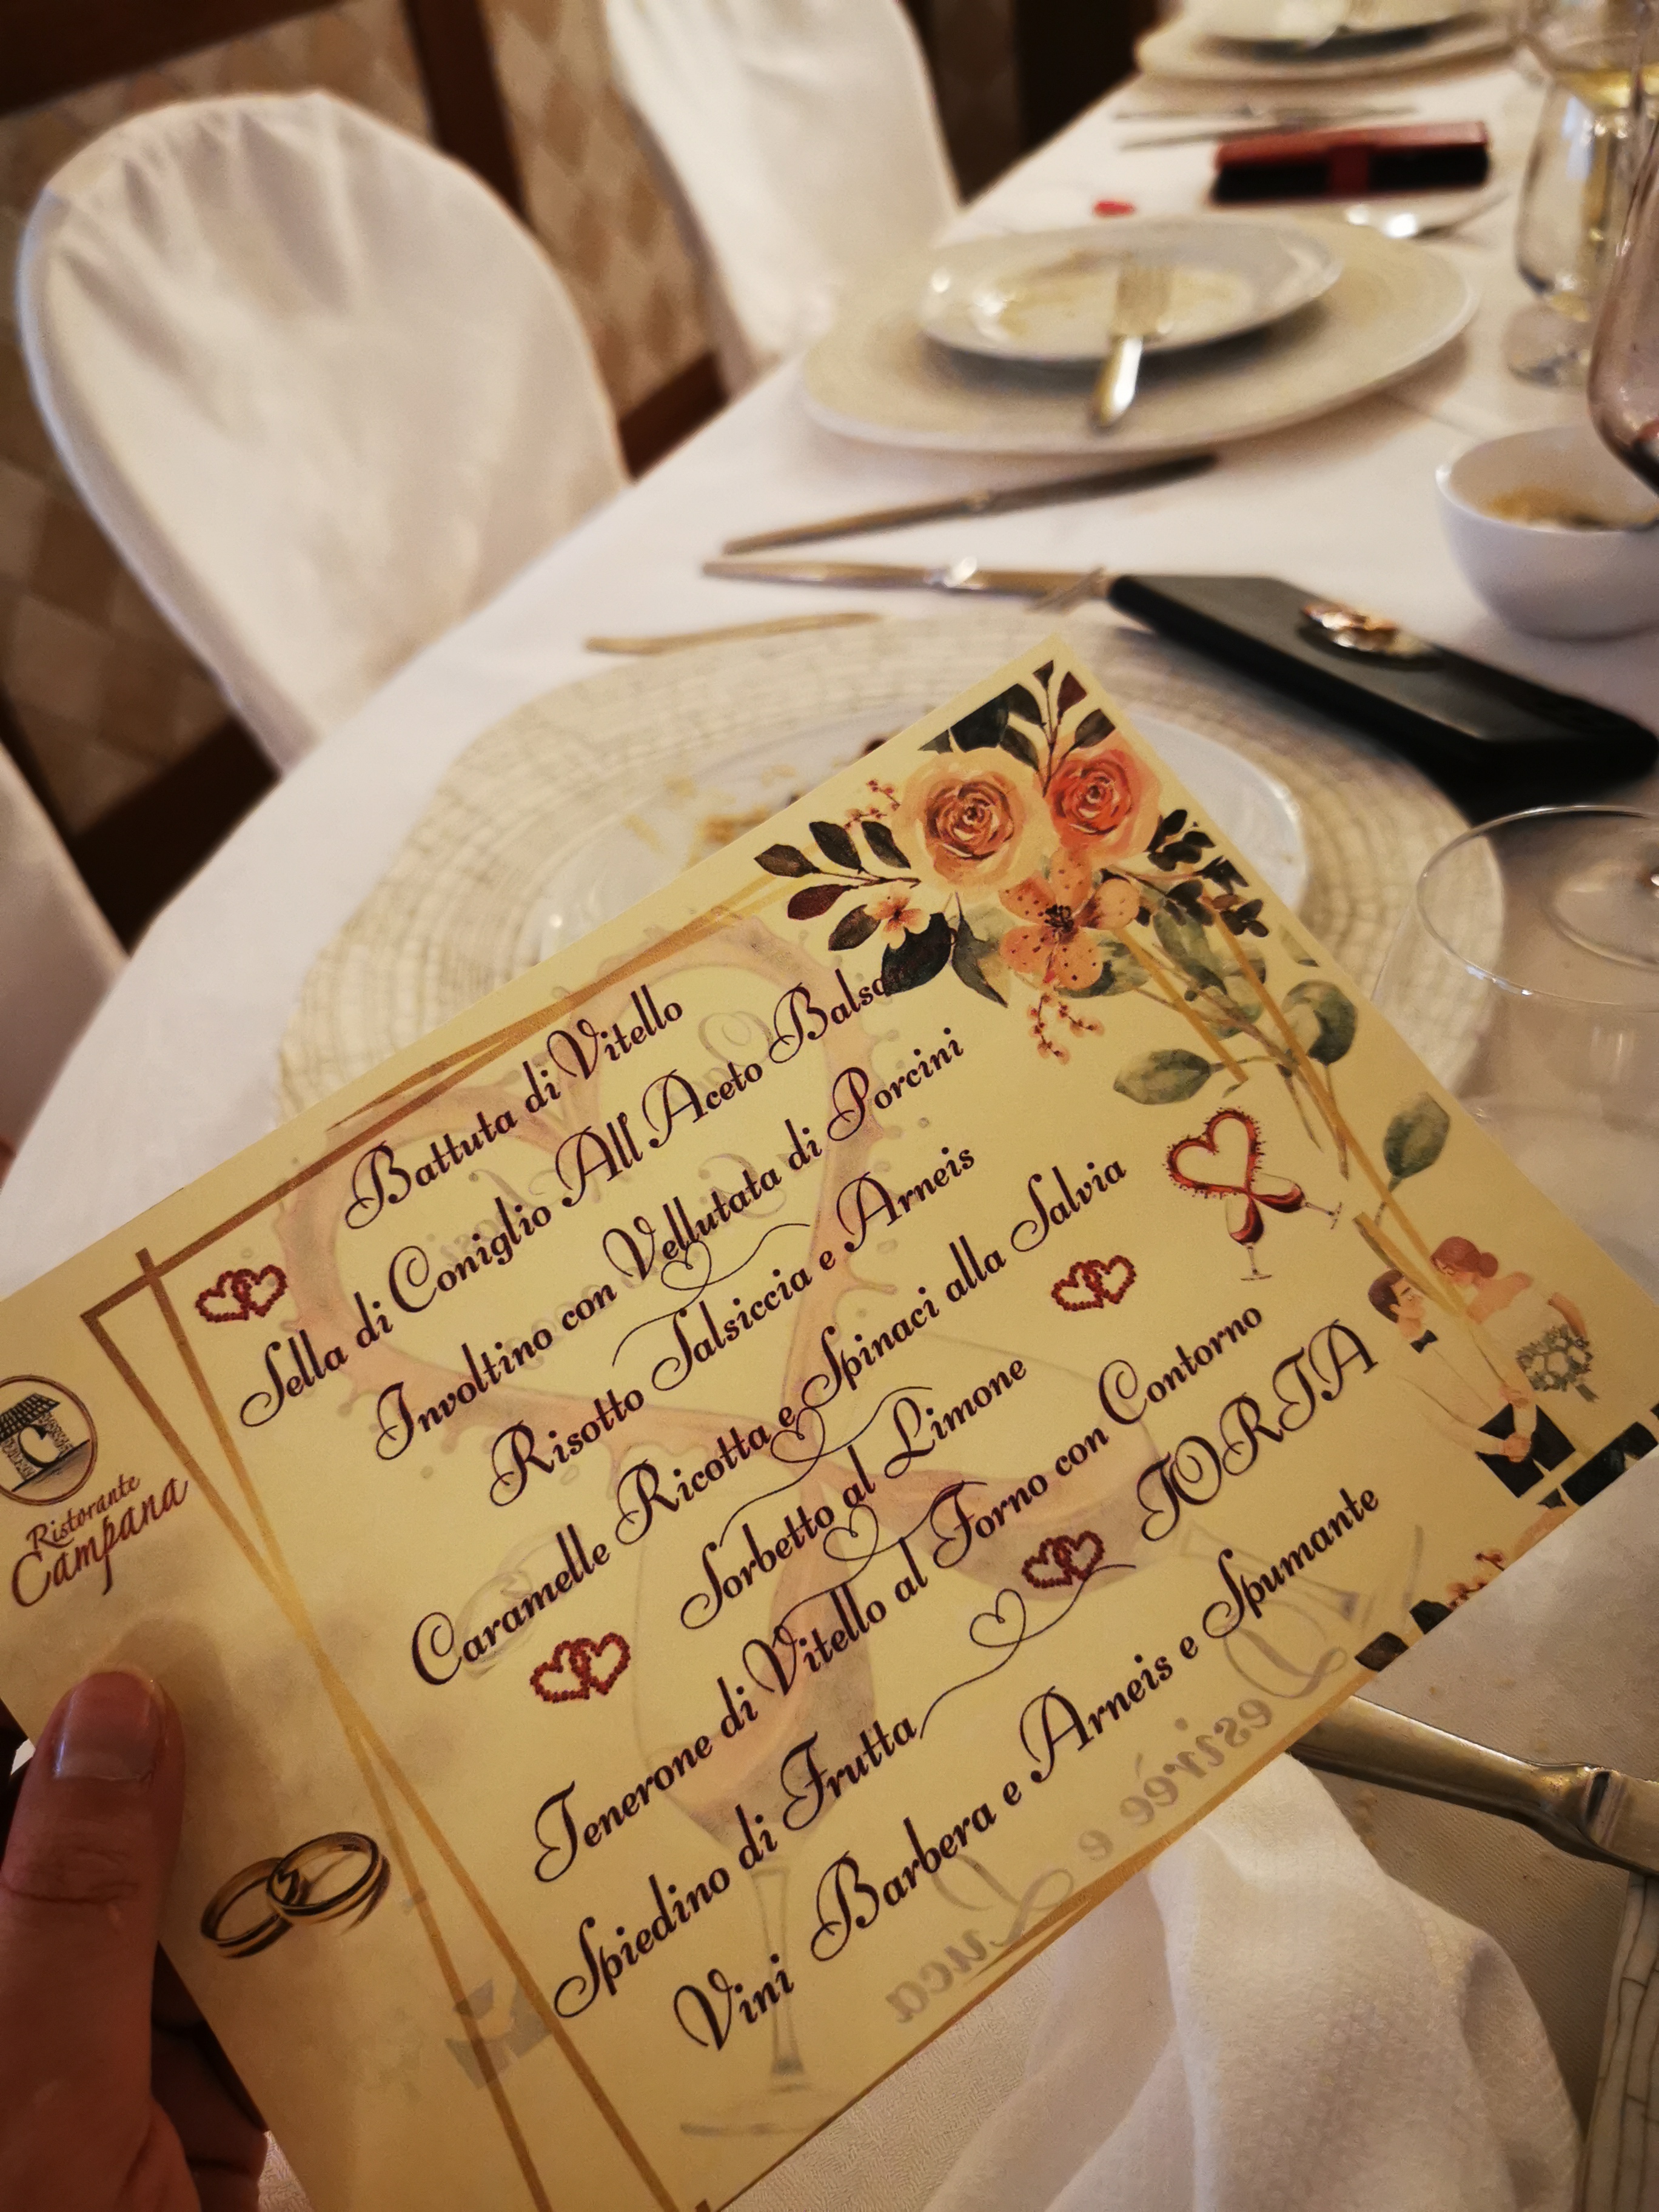 Battuta di Vitello
Sella di Coniglio All' Aceto Balsa
Involtino con Vellutata di Porcini
Risotto Salsiccia e Arneis
Caramelle Ricotta e Spinaci alla Salvia
Sorbetto al Limone
Tenerone di Vitello al Forno con Contorno
Spiedino di Frutta TORTA
Vini Barbera e Arneis e Spumante
Ristorante
Campana
Desirée e
Luca